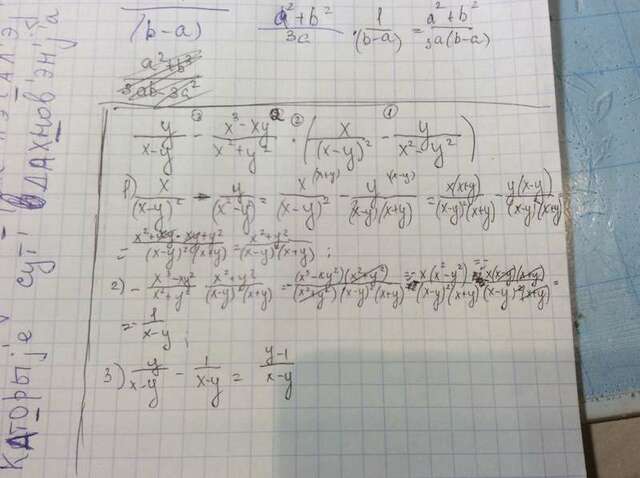 (b-a)
a²+b²/3a · 1/(b-a) = a²+b²/3a(b-a)
a²+b²/3ab-3a²
y/x-y ③ - x³-xy²/x²+y² ② · (x/(x-y)² ① - y/x²-y²)
1) x/(x-y)² - y/(x²-y²) = x (x+y)/(x-y)² - y (x-y)/(x-y)(x+y) = x(x+y)/(x-y)²(x+y) - y(x-y)/(x-y)²(x+y) =
= x²+xy-xy+y²/(x-y)²(x+y) = x²+y²/(x-y)²(x+y) ;
2) - x³-xy²/x²+y² · x²+y²/(x-y)²(x+y) = - (x³-xy²)(x²+y²)/(x²+y²)(x-y)²(x+y) = - x(x²-y²)/(x-y)²(x+y) = - x(x-y)(x+y)/(x-y)²(x+y) =
= - 1/x-y ;
3) y/x-y - 1/x-y = y-1/x-y
Которые суть вдахнов'эн'jа